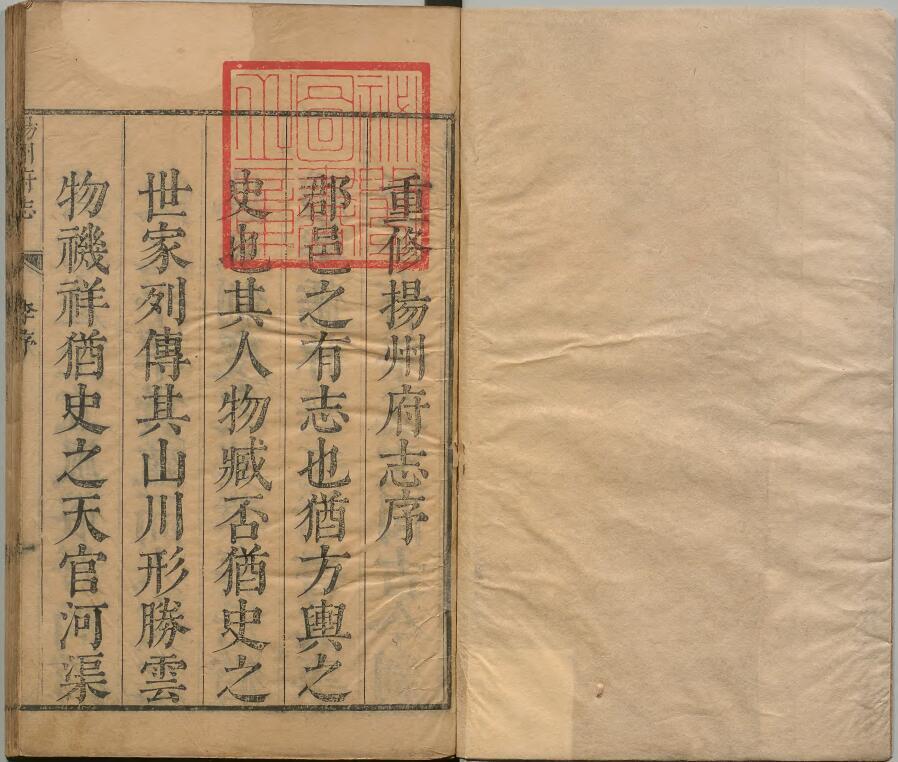 重修揚州府志序
郡邑之有志也猶方輿之
史也其人物臧否猶史之
世家列傳其山川形勝雲
物禨祥猶史之天官河渠
揚州府志
李序